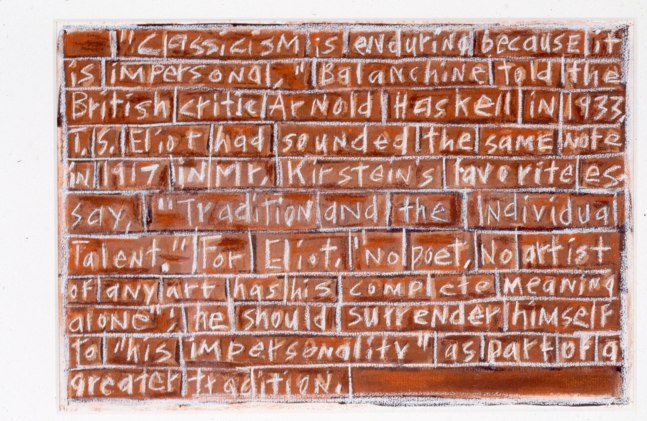 "Classicism is enduring because it
is impersonal," Balanchine told the
British critic Arnold Haskell in 1933.
T.S. Eliot had sounded the same note
in 1917 in Mr. Kirstein's favorite es
say, "Tradition and the Individual
Talent." For Eliot, "No poet, No artist
of any art has his complete meaning
alone"; he should surrender himself
to "his impersonality" as part of a
greater tradition.